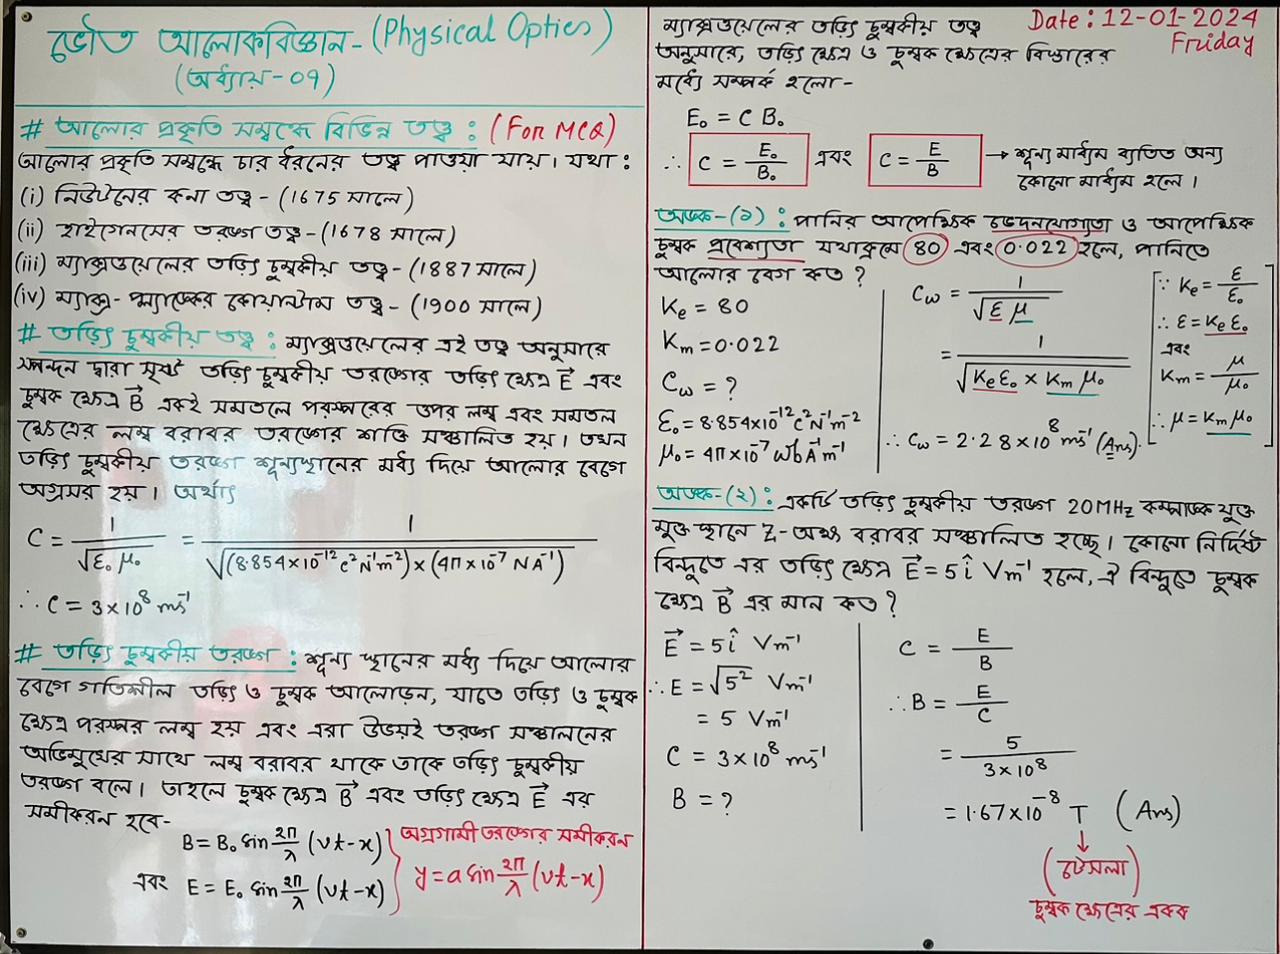 ভৌত আলোকবিজ্ঞান - (Physical Optics)
(অধ্যায়-০৭)
# আলোর প্রকৃতি সম্বন্ধে বিভিন্ন তত্ত্ব : (For MCQ)
আলোর প্রকৃতি সম্বন্ধে চার ধরনের তত্ত্ব পাওয়া যায়। যথা :
(i) নিউটনের কনা তত্ত্ব - (1675 সালে)
(ii) হাইগেনসের তরঙ্গ তত্ত্ব - (1678 সালে)
(iii) ম্যাক্সওয়েলের তড়িৎ চুম্বকীয় তত্ত্ব - (1887 সালে)
(iv) ম্যাক্স - প্ল্যাঙ্কের কোয়ান্টাম তত্ত্ব - (1900 সালে)
# তড়িৎ চুম্বকীয় তত্ত্ব : ম্যাক্সওয়েলের এই তত্ত্ব অনুসারে
স্পন্দন দ্বারা সৃষ্ট তড়িৎ চুম্বকীয় তরঙ্গের তড়িৎ ক্ষেত্র E⃗ এবং
চুম্বক ক্ষেত্র B⃗ একই সমতলে পরস্পরের উপর লম্ব এবং সমতল
ক্ষেত্রের লম্ব বরাবর তরঙ্গের শক্তি সঞ্চালিত হয়। তখন
তড়িৎ চুম্বকীয় তরঙ্গ শূন্যস্থানের মধ্য দিয়ে আলোর বেগে
অগ্রসর হয়। অর্থাৎ
C = 1/√(ε₀μ₀) = 1/√((8.854×10⁻¹² C²N⁻¹m⁻²)×(4π×10⁻⁷ NA⁻¹))
∴ C = 3×10⁸ ms⁻¹
# তড়িৎ চুম্বকীয় তরঙ্গ : শূন্য স্থানের মধ্য দিয়ে আলোর
বেগে গতিশীল তড়িৎ ও চুম্বক আলোড়ন, যাতে তড়িৎ ও চুম্বক
ক্ষেত্র পরস্পর লম্ব হয় এবং এরা উভয়ই তরঙ্গ সঞ্চালনের
অভিমুখের সাথে লম্ব বরাবর থাকে তাকে তড়িৎ চুম্বকীয়
তরঙ্গ বলে। তাহলে চুম্বক ক্ষেত্র B⃗ এবং তড়িৎ ক্ষেত্র E⃗ এর
সমীকরন হবে-
B = B₀ sin 2π/λ (vt-x)
এবং E = E₀ sin 2π/λ (vt-x)
অগ্রগামী তরঙ্গের সমীকরন
y = a sin 2π/λ (vt-x)
Date : 12-01-2024
Friday
ম্যাক্সওয়েলের তড়িৎ চুম্বকীয় তত্ত্ব
অনুসারে, তড়িৎ ক্ষেত্র ও চুম্বক ক্ষেত্রের বিস্তারের
মধ্যে সম্পর্ক হলো-
E₀ = C B₀
∴ C = E₀/B₀ এবং C = E/B → শূন্য মাধ্যম ব্যতিত অন্য
কোনো মাধ্যম হলে।
অঙ্ক-(১) : পানির আপেক্ষিক ভেদনযোগ্যতা ও আপেক্ষিক
চুম্বক প্রবেশ্যতা যথাক্রমে 80 এবং 0.022 হলে, পানিতে
আলোর বেগ কত ?
Ke = 80
Km = 0.022
Cω = ?
ε₀ = 8.854×10⁻¹² C²N⁻¹m⁻²
μ₀ = 4π×10⁻⁷ WbA⁻¹m⁻¹
Cω = 1/√(εμ)
= 1/√(Keε₀ × Kmμ₀)
∴ Cω = 2.28×10⁸ ms⁻¹ (Ans).
∵ Ke = ε/ε₀
∴ ε = Ke ε₀
এবং
Km = μ/μ₀
∴ μ = Km μ₀
অঙ্ক-(২) : একটি তড়িৎ চুম্বকীয় তরঙ্গ 20MHz কম্পাঙ্ক যুক্ত
মুক্ত স্থানে Z-অক্ষ বরাবর সঞ্চালিত হচ্ছে। কোনো নির্দিষ্ট
বিন্দুতে এর তড়িৎ ক্ষেত্র E⃗ = 5î Vm⁻¹ হলে, ঐ বিন্দুতে চুম্বক
ক্ষেত্র B⃗ এর মান কত ?
E⃗ = 5î Vm⁻¹
∴ E = √5² Vm⁻¹
= 5 Vm⁻¹
C = 3×10⁸ ms⁻¹
B = ?
C = E/B
∴ B = E/C
= 5/(3×10⁸)
= 1.67×10⁻⁸ T (Ans)
↓
(টেসলা)
চুম্বক ক্ষেত্রের একক